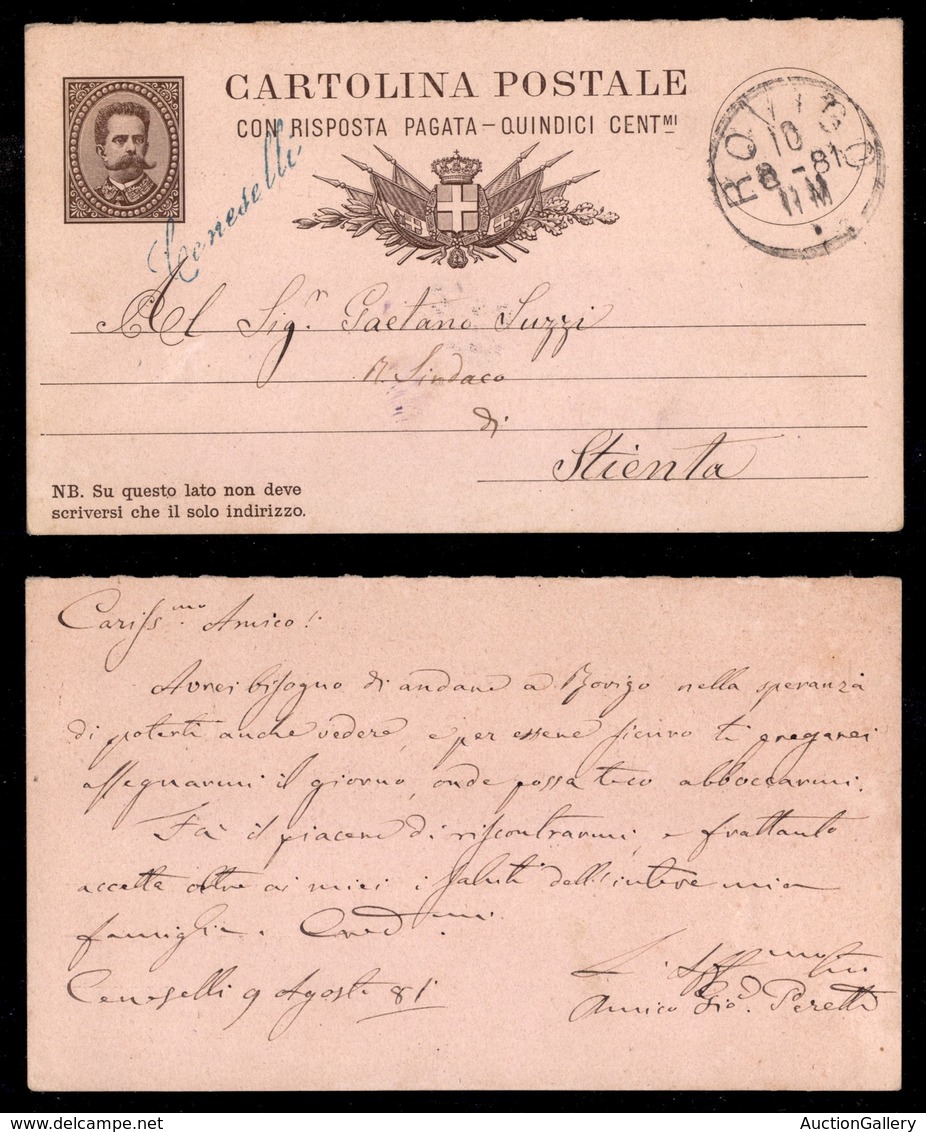 CARTOLINA POSTALE
CON RISPOSTA PAGATA – QUINDICI CENTMI
ROVIGO
10
8 - 81
11 M
Ceneselli
Al Sigr Gaetano Suzzi
R. Sindaco
di
Stienta
NB. Su questo lato non deve
scriversi che il solo indirizzo.
Carissmo Amico!
Avrei bisogno di andare a Rovigo nella speranza
di poterti anche vedere, e per essere sicuro ti pregarei
assegnarmi il giorno, onde possa teco abboccarmi.
Fai il piacere di riscontrarmi, e frattanto
accetta oltre ai miei i saluti dell'intera mia
famiglia. Credmi
L'Affmo tuo
Ceneselli 9 Agosto 81
Amico Gio. Peretti
AuctionGallery